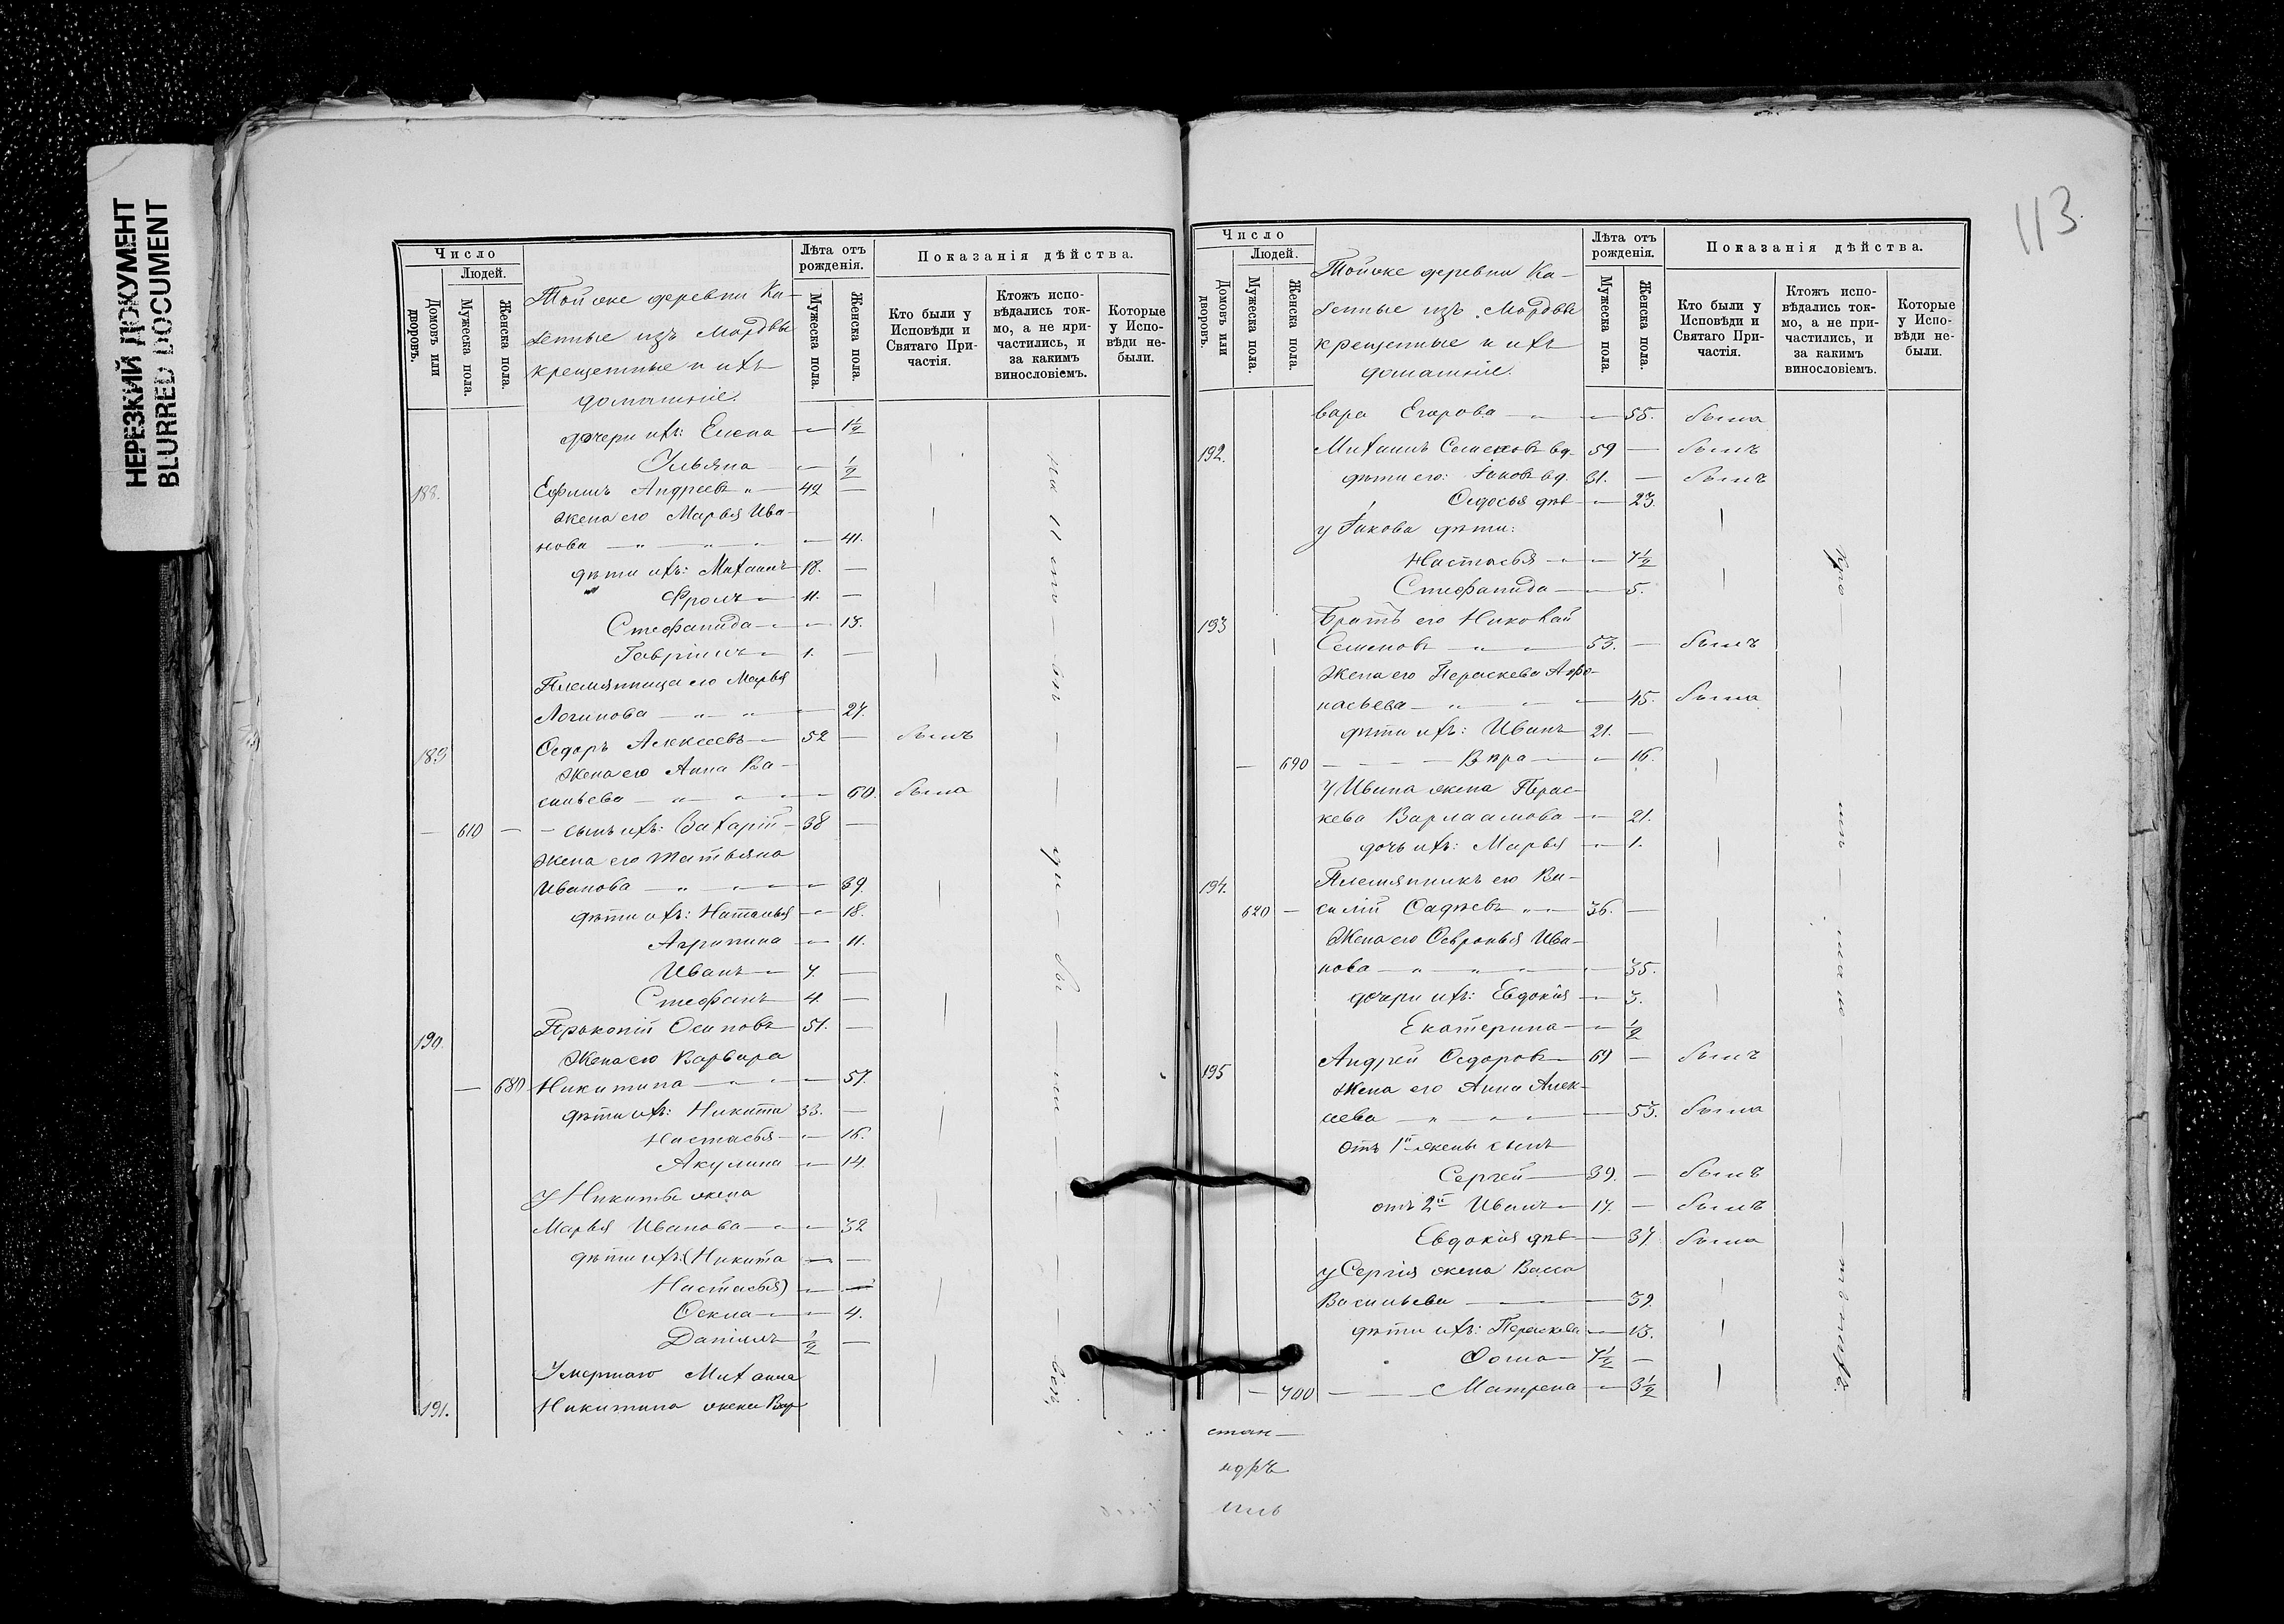 НЕРЕЗКИЙ ДОКУМЕНТ
BLURRED DOCUMENT
Число
Людей.
Домовъ или дворовъ.
Мужеска пола.
Женска пола.
Тойже деревни Ка-
зенные изъ Мордвы
крещенные и ихъ
домашніе.
Лѣта отъ рожденія.
Мужеска пола.
Женска пола.
Показанія дѣйства.
Кто были у Исповѣди и Святаго Причастія.
Ктожъ исповѣдались токмо, а не причастились, и за какимъ винословіемъ.
Которые у Исповѣди небыли.
дочери ихъ: Елена — 1½
Ульяна — ½
188. Ефимъ Андреевъ „ — 42 —
жена его Марья Ива-
нова — „ — „ — 41.
дѣти ихъ: Михаилъ 18. —
Фролъ — 11. —
Стефанида — 13.
Гавріилъ — 1. —
Племянница его Марья
Логинова — „ — „ — 27.
189 Ѳедоръ Алексѣевъ — 52 — былъ
жена его Анна Ва-
сильева — „ — „ — 60. была
— 610 — — сынъ ихъ: Захарій — 38 —
жена его Татьяна
Иванова — „ — 39
дѣти ихъ: Наталья — 18.
Агрипина — 11.
Иванъ — 7. —
Стефанъ — 4. —
190. Прокопій Осиповъ — 51. —
Жена его Варвара
— 680 Никитина — „ — 57.
дѣти ихъ: Никита 33. —
Настасья — 16.
Акулина — 14.
У Никиты жена
Марья Иванова — 32
дѣти ихъ: (Никита — —
Настасья) — —
Ѳекла — 4.
Даніилъ — ½ —
Умершаго Михаила
191. Никитина жена Вар
113.
Число
Людей.
Домовъ или дворовъ.
Мужеска пола.
Женска пола.
Тойже деревни Ка-
зенные изъ Мордвы
крещенные и ихъ
домашніе.
Лѣта отъ рожденія.
Мужеска пола.
Женска пола.
Показанія дѣйства.
Кто были у Исповѣди и Святаго Причастія.
Ктожъ исповѣдались токмо, а не причастились, и за какимъ винословіемъ.
Которые у Исповѣди небыли.
вара Егорова — „ — 55. была
192. Михаилъ Семеновъ вд. 59 — былъ
дѣти его: Іаковъ вд. 31. — былъ
Ѳедосья дѣв — 23.
у Іакова дѣти:
Настасья — 7½
Стефанида — 5.
193 Братъ его Николай
Семеновъ — „ 53. — былъ
Жена его Пераскева Аѳо-
насьева — „ — 45. была
дѣти ихъ: Иванъ 21. —
— 690 — — — Вѣра — 16.
У Ивана жена Перас-
кева Варлаамова — 21.
дочь ихъ: Марья — 1.
194. Племянникъ его Ва-
620 — силій Фадѣевъ „ — 36. —
Жена его Ѳевронья Ива-
нова — „ — „ — 35.
дочери ихъ: Евдокія — 3.
Екатерина — ½
195 Андрей Ѳедоровъ — 69 — былъ
Жена его Анна Алек-
сеева „ — „ — 53. была
отъ 1й жены сынъ
Сергей — 39. — былъ
отъ 2й Иванъ — 17. — былъ
Евдокія дѣв — 37. была
у Сергія жена Васса
Васильева — 39.
дѣти ихъ: Пераскева — 13.
Ѳома — 7½ —
— 700 — — Матрена — 3½
стан —
ндръ